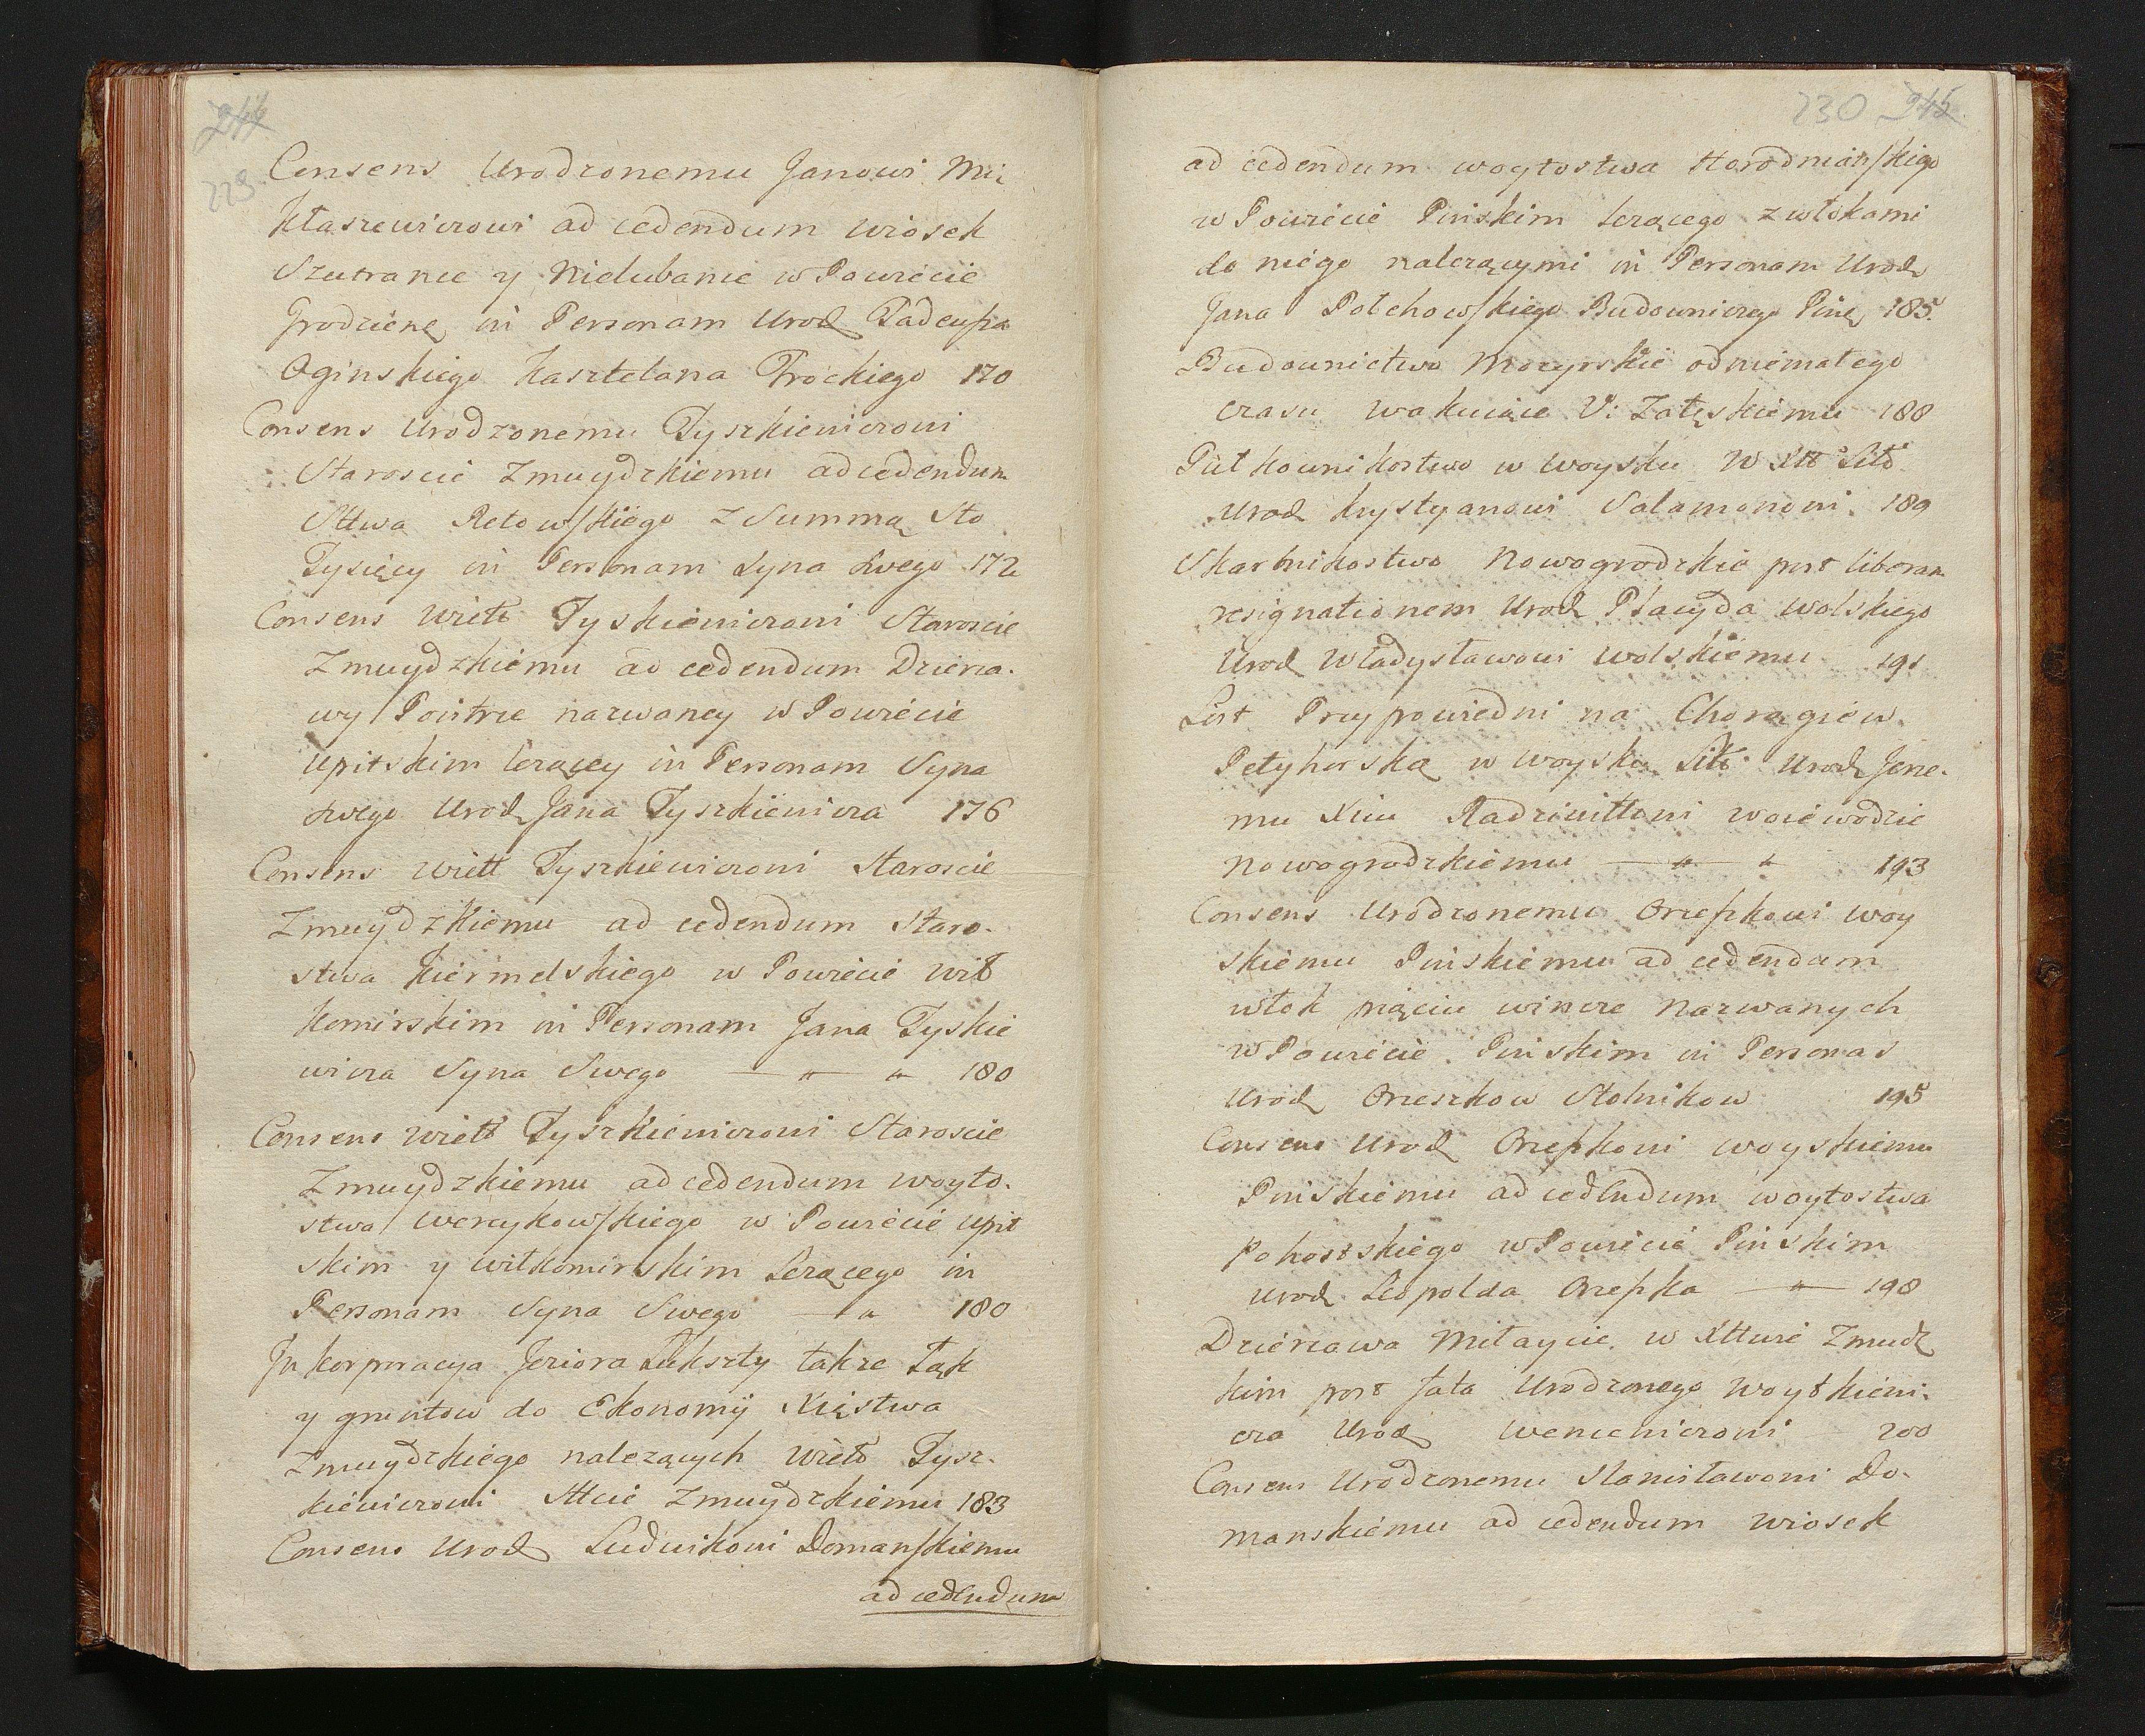 244
229.
Consens Urodzonemu Janowi Mi:
kłaszewiczowi ad cedendum wiosek
Szutrance y Nielubance w Powiecie
Grodzienę in Personam Urod Tadeusza
Oginskiego Kasztelana Trockiego 170
Consens Urodzonemu Tyszkiewiczowi
Staroscie Zmuydzkiemu ad cedendum
Sttwa Retowskiego z Summą Sto
Tysięcy in Personam Syna Swego 172
Consens Wielt Tyskiewiczowi Staroscie
Zmuydzkiemu ad cedendum Dzierża.
wy Pointrze nazwaney w Powiecie
Upitskim leżącey in Personam Syna
swego Urod Jana Tyszkiewicza 176
Consens Wielt Tyszkiewiczowi Staroscie
Zmuydzkiemu ad cedendum Staro.
stwa Kiermelskiego w Powiecie Wił
komirskim in Personam Jana Tyskie
wicza Syna Swego — " " 180
Consens Wielt Tyszkiewiczowi Staroscie
Zmuydzkiemu ad cedendum woyto.
stwa Werzykowskiego w Powiecie Upit
skim y wiłkomirskim Leżącego in
Personam Syna Swego — " 180
Inkorporacya Jeziora Łukszty także Łąk
y gruntow do Ekonomij Xięstwa
Zmuydzkiego należących Wielt Tysz.
kiewiczowi Sttcie Zmuydzkiemu 183
Consens Urod Ludwikowi Domanskiemu
ad cedendum
230 245
ad cedendum woytostwa Horodnianskigo
w Powiecie Pinskim leżącego z włokami
do niego należącymi in Personam Urod
Jana Połchowskiego Budowniczego Pinę 185.
Budownictwo Mozyrskie od niemałego
czasu wakuiące V: Załęskiemu 188
Pułkownikostwo w woysku W Xtt Litt
Urod Krystyanowi Salamonowi. 189
Skarbnikostwo Nowogrodzkie post liberam
resignationem Urod Płacyda Wolskiego
Urod Władysławowi Wolskiemu 191
List Przypowiedni na Chorągiew
Petyhorską w woysku Litt Urod Jene.
mu Xciu Radziwiłłowi woiewodzie
Nowogrodzkiemu — " — " 193
Consens Urodzonemu Orzeszkowi Woy
skiemu Pinskiemu ad cedendam
włok pięciu wincze nazwanych
w Powiecie Pinskim in Personas
Urod Orzeszkow Stolnikow 195
Consens Urod Orzeszkowi woyskiemu
Pinskiemu ad cedendum woytostwa
Pohostskiego w Powiecie Pinskim
Urod Leopolda Orzeszka — " — 198
Dzierżawa Miłaycie w Xttwie Zmudz
kim post fata Urodzonego Woytkiewi:
cza Urod Wencewiczowi 200
Consens Urodzonemu Stanisławowi Do.
manskiemu ad cedendum wiosek